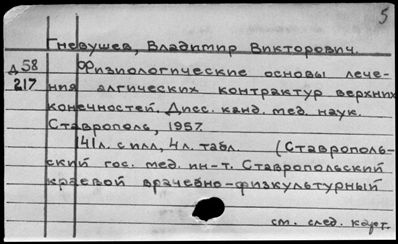 5
Гневушев, Владимир Викторович.
Д58 Физиологические основы лече-
217 ния алгических контрактур верхних
конечностей. Дисс. канд. мед. наук.
Ставрополь, 1957.
141л. с илл, 4л. табл. (Ставрополь-
ский гос. мед. ин-т. Ставропольский
краевой врачебно-физкультурный
см. след. карт.